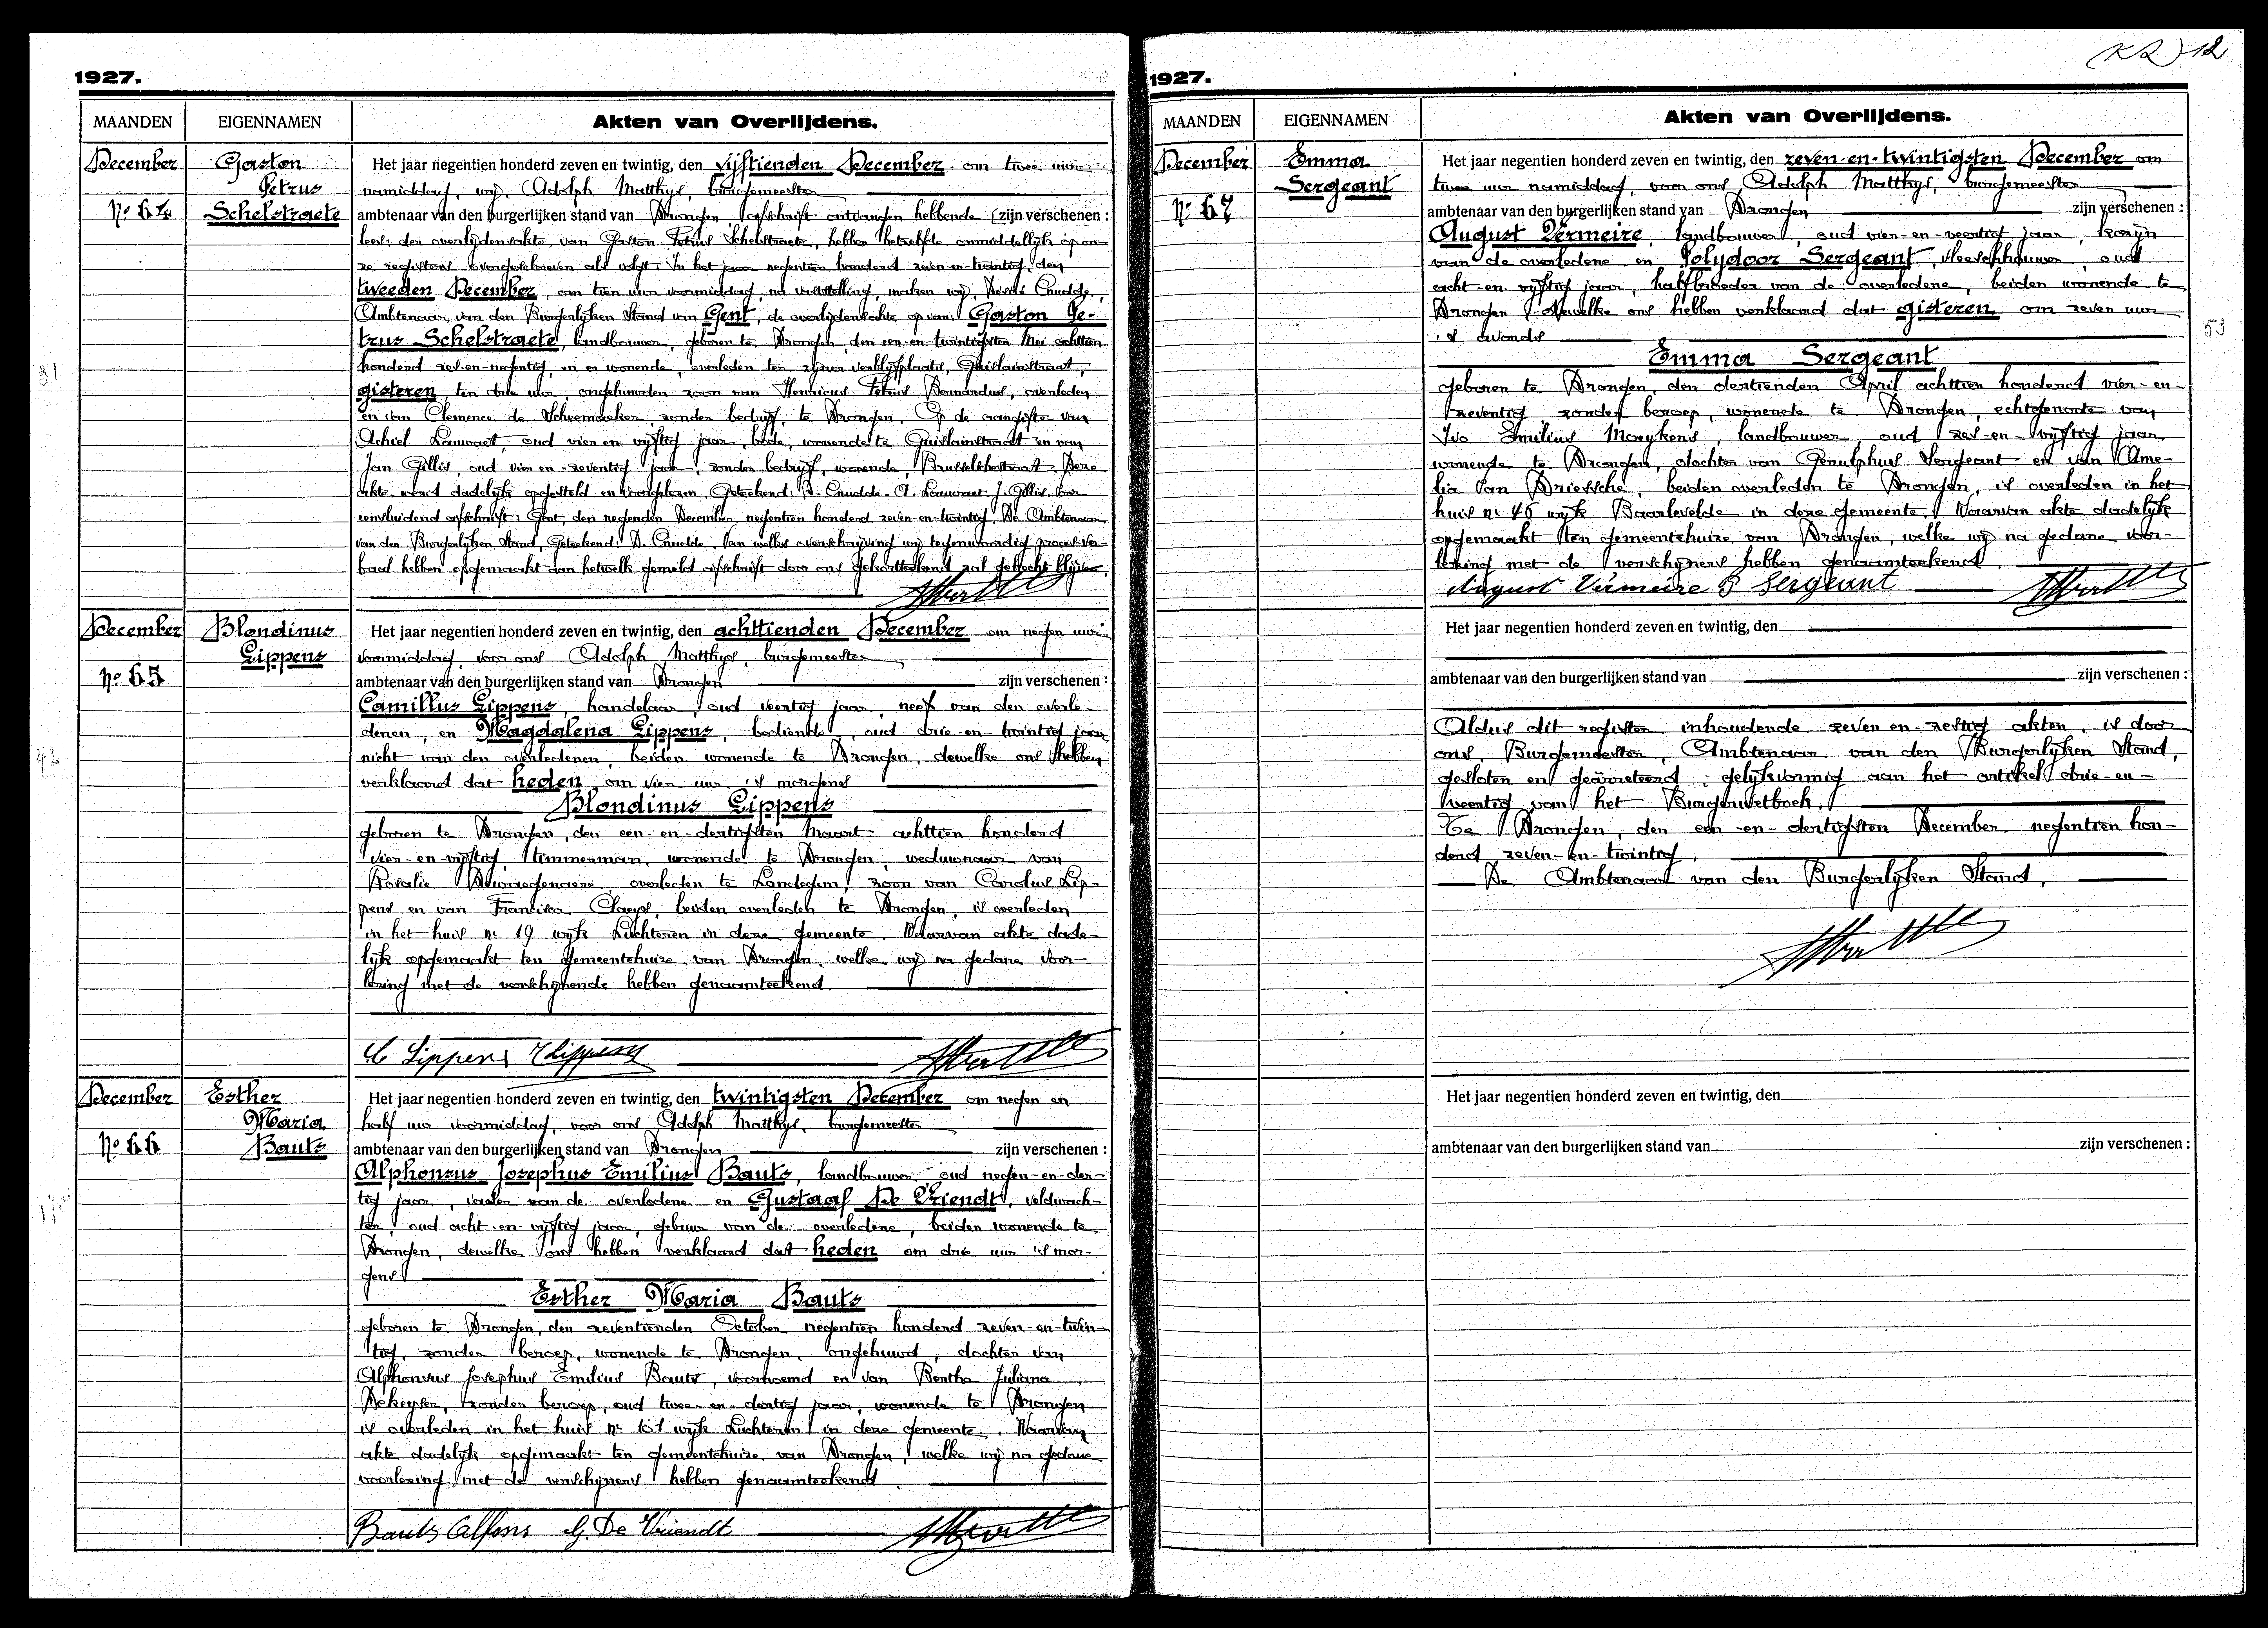 (K2) 12
1927.
MAANDEN EIGENNAMEN Akten van Overlijdens.
December Gaston Petrus Schelstraete
No 64
Het jaar negentien honderd zeven en twintig, den vijftienden December om twee uur
namiddag, wij, Adolph Matthys, burgemeester
ambtenaar van den burgerlijken stand van Drongen afschrift ontvangen hebbende zijn verschenen :
der overlijdensakte van Gaston Petrus Schelstraete, hebben hetzelfde onmiddellijk op on-
ze registers overgeschreven als volgt: In het jaar negentien honderd zeven-en-twintig, den
tweeden December, om tien uur voormiddag, na vaststelling, maken wij, Désiré Cnudde,
Ambtenaar van den Burgerlijken Stand van Gent, de overlijdensakte op van: Gaston Pe-
trus Schelstraete, landbouwer, geboren te Drongen, den een-en-twintigsten Mei achttien
honderd zes-en-negentig, en er wonende, overleden ten zijner verblijfplaats, Guislainstraat,
gisteren, ten drie uur, ongehuwden zoon van Henricus Petrus Bernardus, overleden
en van Clemence de Scheemaeker, zonder bedrijf, te Drongen. Op de aangifte van
Achiel Lauwaet, oud vier en vijftig jaar, bode, wonende te Guislainstraat en van
Jan Gillis, oud vier-en-zeventig jaar, zonder bedrijf, wonende, Brusselschestraat. Deze
akte werd dadelijk opgesteld en voorgelezen. Geteekend: D. Cnudde. A. Lauwaet J. Gillis. Voor
eensluidend afschrift: Gent, den negenden December negentien honderd zeven-en-twintig. De Ambtenaar
van den Burgerlijken Stand, Geteekend: D. Cnudde. Van welks overschrijving wij tegenwoordig proces-ver-
baal hebben opgemaakt aan hetwelk gemeld afschrift door ons gekorttekend zal gehecht blijven.
31
December Blondinus Lippens
No 65
Het jaar negentien honderd zeven en twintig, den achttienden December om negen uur
voormiddag, voor ons Adolph Matthys, burgemeester
ambtenaar van den burgerlijken stand van Drongen zijn verschenen :
Camillus Lippens, handelaar, oud veertig jaar, neef van den overle-
denen, en Magdalena Lippens, bediende, oud drie-en-twintig jaar,
nicht van den overledenen, beiden wonende te Drongen, dewelke ons hebben
verklaard dat heden om vier uur 's morgens
Blondinus Lippens
geboren te Drongen, den een-en-dertigsten Maart achttien honderd
vier-en-vijftig, timmerman, wonende te Drongen, weduwnaar van
Rosalie overleden te Landegem, zoon van Carolus Lip-
pens en van Francisca Claeys, beiden overleden te Drongen, is overleden
in het huis nr 19 wijk Luchteren in deze gemeente. Waarvan akte dade-
lijk opgemaakt ten gemeentehuize van Drongen, welke wij na gedane voor-
lezing met de verschijnende hebben genaamteekend.
C Lippens Lippens
42
December Esther Maria Bauts
No 66
Het jaar negentien honderd zeven en twintig, den twintigsten December om negen en
half uur voormiddag, voor ons Adolph Matthys, burgemeester
ambtenaar van den burgerlijken stand van Drongen zijn verschenen :
Alphonsus Josephus Emilius Bauts, landbouwer, oud negen-en-der-
tig jaar, vader van de overledene en Gustaaf De Vriendt, veldwach-
ter, oud acht-en-vijftig jaar, gebuur van de overledene, beiden wonende te
Drongen, dewelke ons hebben verklaard dat heden om drie uur 's mor-
gens
Esther Maria Bauts
geboren te Drongen, den zeventienden October negentien honderd zeven-en-twin-
tig, zonder beroep, wonende te Drongen, ongehuwd, dochter van
Alphonsus Josephus Emilius Bauts, voornoemd en van Bertha Juliana
Dekeyser, zonder beroep, oud twee-en-dertig jaar, wonende te Drongen
is overleden in het huis nr 101 wijk Luchteren in deze gemeente. Waarvan
akte dadelijk opgemaakt ten gemeentehuize van Drongen, welke wij na gedane
voorlezing met de verschijners hebben genaamteekend
Bauts Alfons G. De Vriendt
1927.
MAANDEN EIGENNAMEN Akten van Overlijdens.
December Emma Sergeant
No 67
Het jaar negentien honderd zeven en twintig, den zeven-en-twintigsten December om
twee uur namiddag, voor ons, Adolph Matthys, burgemeester
ambtenaar van den burgerlijken stand van Drongen zijn verschenen :
August Vermeire, landbouwer, oud vier-en-veertig jaar, kozijn
van de overledene en Polydoor Sergeant, vleeschhouwer, oud
acht-en-vijftig jaar, halfbroeder van de overledene, beiden wonende te
Drongen, dewelke ons hebben verklaard dat gisteren om zeven uur
's avonds
Emma Sergeant
geboren te Drongen, den dertienden April achttien honderd vier-en-
zeventig zonder beroep, wonende te Drongen, echtgenoote van
Ivo Emilius Moeykens, landbouwer, oud zes-en-vijftig jaar,
wonende te Drongen, dochter van Gerulphus Sergeant en van Ame-
lia Van Driessche, beiden overleden te Drongen, is overleden in het
huis nr 46 wijk Baarlevelde in deze gemeente. Waarvan akte dadelijk
opgemaakt ten gemeentehuize van Drongen, welke wij na gedane voor-
lezing met de verschijners hebben genaamteekend.
August Vermeire P Sergeant
53
Het jaar negentien honderd zeven en twintig, den
ambtenaar van den burgerlijken stand van zijn verschenen :
Aldus dit register inhoudende zeven-en-zestig akten, is door
ons, Burgemeester, Ambtenaar van den Burgerlijken Stand,
gesloten en gearresteerd gelijkvormig aan het artikel drie-en-
veertig van het Burgerwetboek.
Te Drongen, den een-en-dertigsten December negentien hon-
derd zeven-en-twintig.
De Ambtenaar van den Burgerlijken Stand,
Het jaar negentien honderd zeven en twintig, den
ambtenaar van den burgerlijken stand van zijn verschenen :